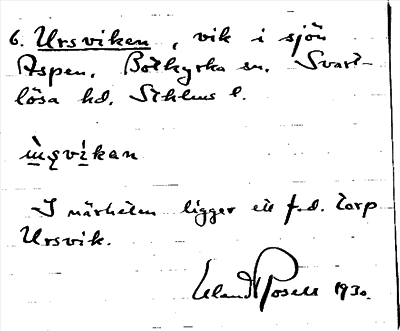 6. Ursviken, vik i sjön
Aspen. Botkyrka sn. Svart-
lösa hd. Sthlms l.
I närheten ligger ett f.d. torp
Ursvik.
1930.